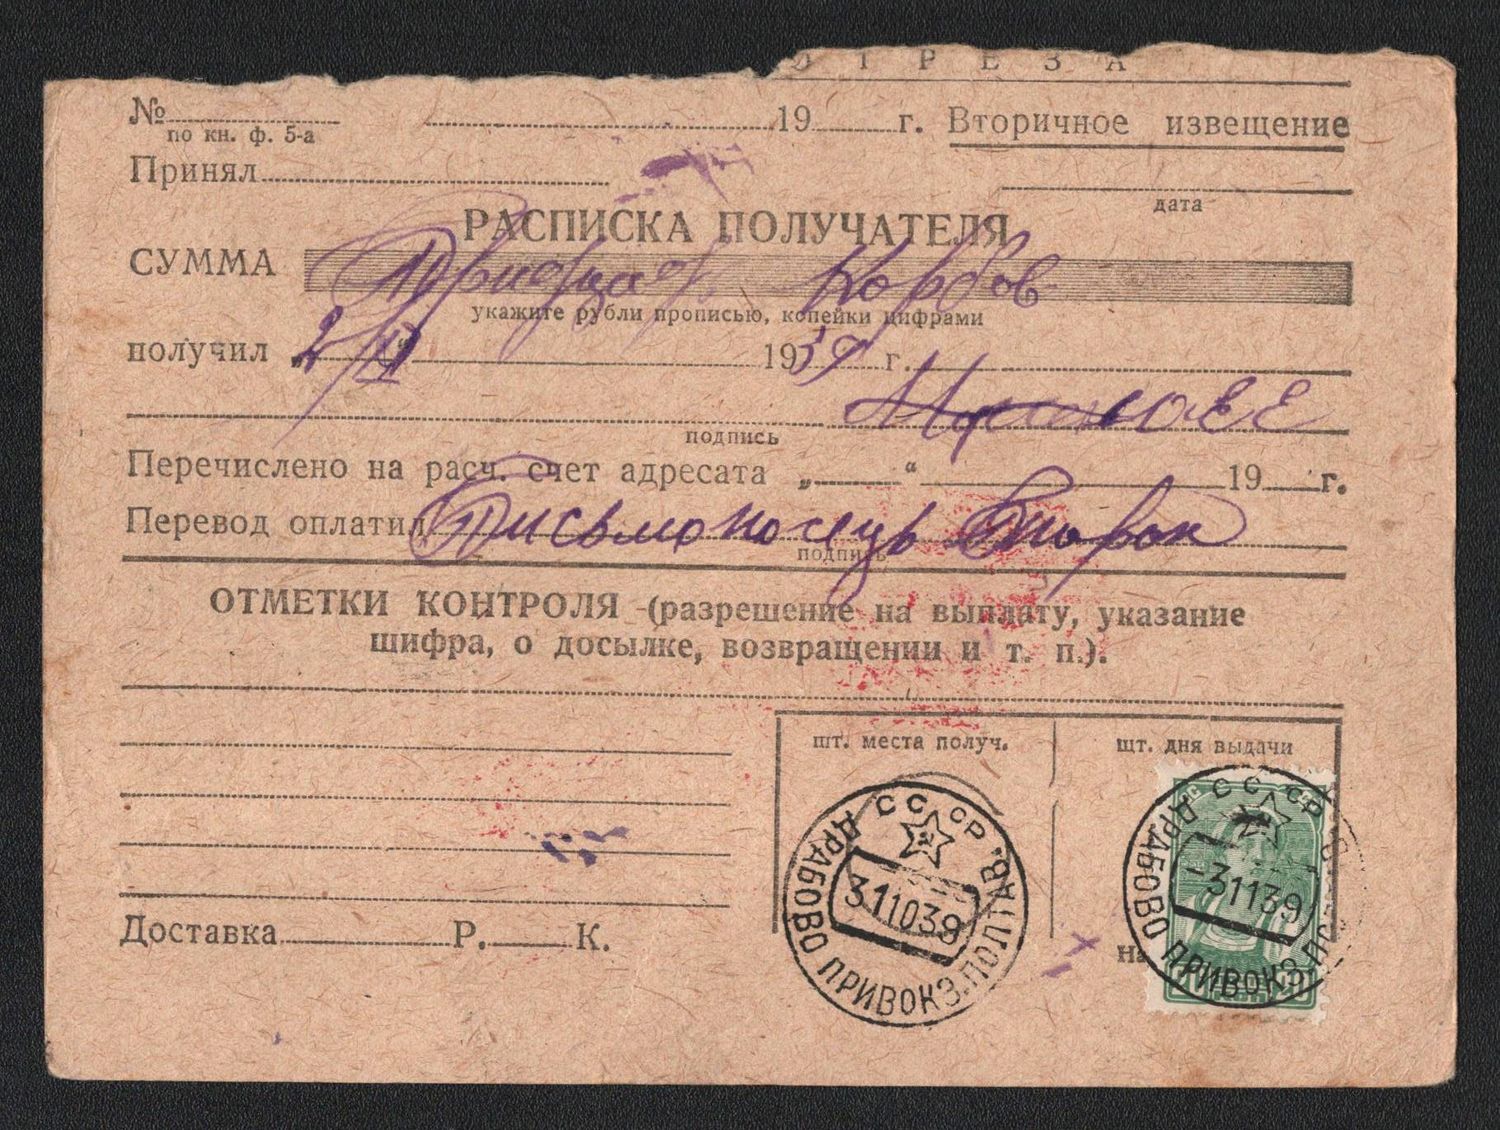 ОТРЕЗА
№ 19 г. Вторичное извещение
по кн. ф. 5-а
Принял
дата
РАСПИСКА ПОЛУЧАТЕЛЯ
СУММА
укажите рубли прописью, копейки цифрами
получил „2/XI“ 1939 г.
подпись
Перечислено на расч. счет адресата „ “ 19 г.
Перевод оплатил Письмоносец
подпись
ОТМЕТКИ КОНТРОЛЯ (разрешение на выплату, указание
шифра, о досылке, возвращении и т. п.).
шт. места получ. шт. дня выдачи
СССР
ДРАБОВО ПРИВОКЗ. ПОЛТАВ.
311039
СССР
ДРАБОВО ПРИВОКЗ.
-31139
на
20 20
Доставка Р. К.